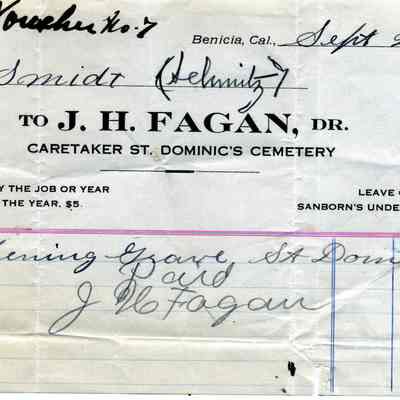 Voucher No. 7
Benicia, Cal., Sept
Smidt (Helmitz)
TO J. H. FAGAN, DR.
CARETAKER ST. DOMINIC'S CEMETERY
Y THE JOB OR YEAR
THE YEAR, $5.
LEAVE O
SANBORN'S UNDE
ening Grave, St Dom
Paid
J H Fagan